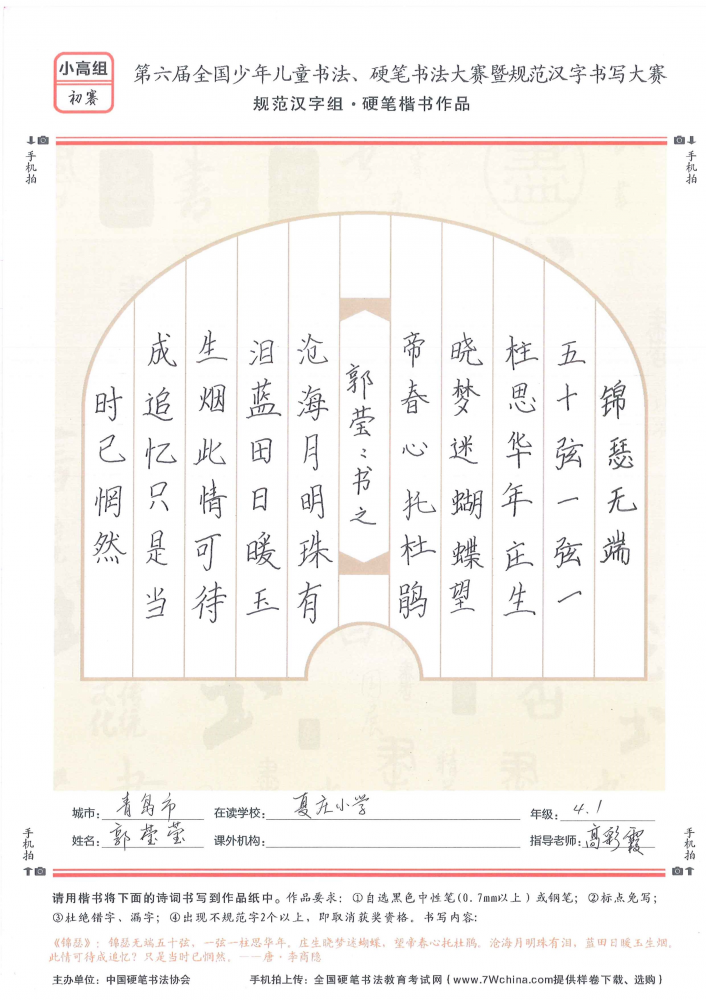 小高组
初赛
第六届全国少年儿童书法、硬笔书法大赛暨规范汉字书写大赛
规范汉字组·硬笔楷书作品
手机拍
手机拍
锦瑟无端
五十弦一弦一
柱思华年庄生
晓梦迷蝴蝶望
帝春心托杜鹃
郭莹〻书之
沧海月明珠有
泪蓝田日暖玉
生烟此情可待
成追忆只是当
时已惘然
城市：青岛市 在读学校：夏庄小学 年级：4.1
姓名：郭莹莹 课外机构： 指导老师：高彩霞
手机拍
手机拍
请用楷书将下面的诗词书写到作品纸中。作品要求：①自选黑色中性笔(0.7mm以上)或钢笔；②标点免写；
③杜绝错字、漏字；④出现不规范字2个以上，即取消获奖资格。书写内容：
《锦瑟》：锦瑟无端五十弦，一弦一柱思华年。庄生晓梦迷蝴蝶，望帝春心托杜鹃。沧海月明珠有泪，蓝田日暖玉生烟。
此情可待成追忆？只是当时已惘然。——唐·李商隐
主办单位：中国硬笔书法协会 手机拍上传：全国硬笔书法教育考试网（www.7Wchina.com提供样卷下载、选购）